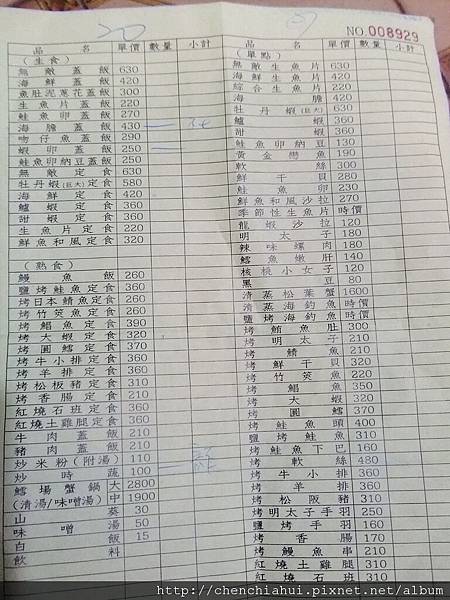 20
NO.008929
品名 單價 數量 小計
(生食)
無敵蓋飯 630
海鮮蓋飯 420
魚肚泥蔥花蓋飯 300
生魚片蓋飯 220
鮭魚卵蓋飯 270
海膽蓋飯 430 一
吻仔魚蓋飯 290
蝦卵蓋飯 250 一
鮭魚卵納豆蓋飯 250
無敵定食 630
牡丹蝦(巨大)定食 580
海鮮定食 420
蝦定食 360
甜蝦定食 360
生魚片定食 220
鮮魚和風定食 320
(熟食)
鰻魚飯 260
鹽烤鮭魚定食 260
烤日本鯖魚定食 260
烤竹筴魚定食 260
烤鯧魚定食 390
烤大蝦定食 320
烤圓鱈定食 370
烤牛小排定食 360
烤羊排定食 360
烤松板豬定食 310
烤香腸定食 210
紅燒石班定食 360
紅燒土雞腿定食 360
牛肉蓋飯 210
豬肉蓋飯 210
炒米粉(附湯) 110
炒時蔬 100
鱈場蟹鍋大 2800
(清湯/味噌湯)中 1900
山葵 30
味噌湯 50
白飯 15
飲料
品名 單價 數量 小計
(單點)
無敵生魚片 630
海鮮生魚片 420
綜合生魚片 220
海膽 420
牡丹蝦(巨大) 630
蝦 360
甜蝦 360
鮭魚卵納豆 130
黃金鸞魚 190
軟絲 300
鮮干貝 280
鮭魚卵 230
鮮魚和風沙拉 270
季節性生魚片 時價
龍蝦沙拉 120
明太子 180
辣味螺肉 180
鱈魚嫩肝 140
核桃小女子 120
黑豆 80
清蒸松葉蟹 1600
清蒸海釣魚 時價
鹽烤海釣魚 時價
烤鮪魚肚 300
烤明太子 210
烤鯖魚 210
烤鮮干貝 320
烤竹筴魚 220
烤鯧魚 350
烤大蝦 320
烤圓鱈 370
烤鮭魚頭 400
鹽烤鮭魚 310
烤鮭魚下巴 160
烤軟絲 480
烤牛小排 360
烤羊排 360
烤松阪豬 310
烤明太子手羽 250
鹽烤手羽 160
烤香腸 170
烤鰻魚串 210
紅燒土雞腿 310
紅燒石班 310
http://chenchiahui.pixnet.net/album